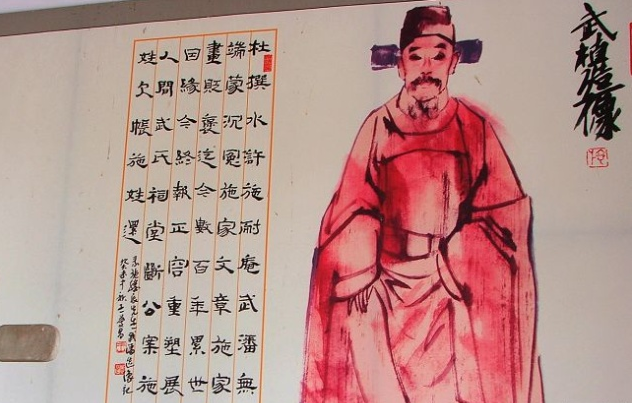 武植造像
杜撰水滸施耐庵武潘無
端蒙沉冤施家文章施家
畫貶褒迄今數百年累世
因緣今終報正容重塑展
人間武氏祠堂斷公案施
姓欠帳施姓還